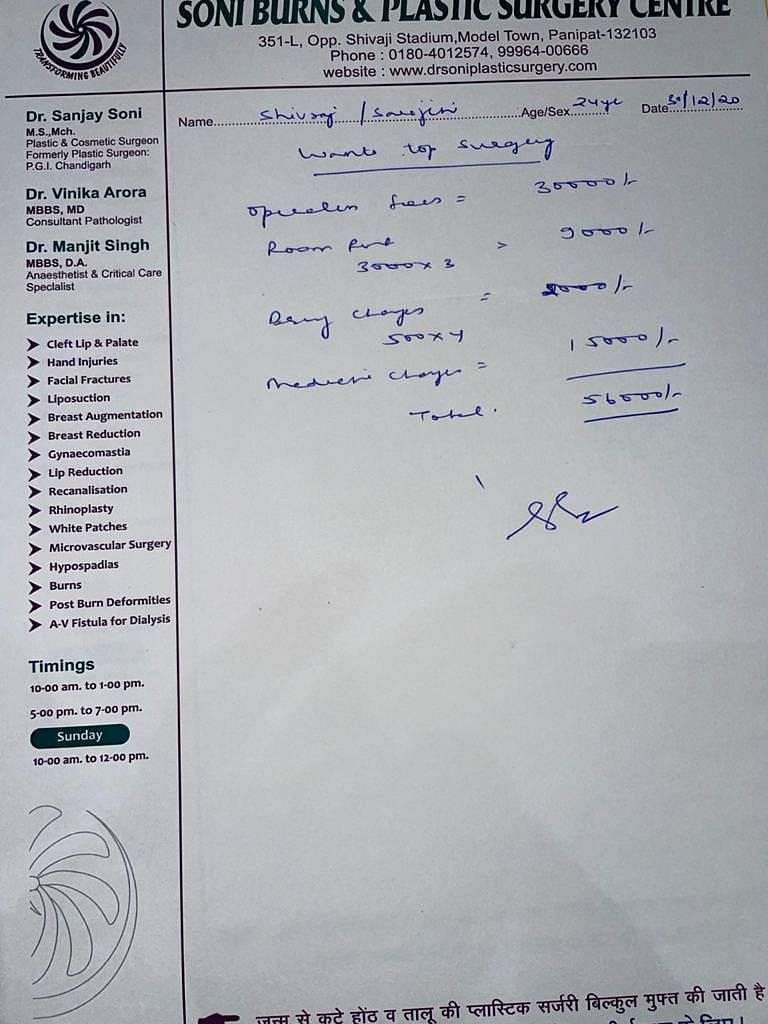 SONI BURNS & PLASTIC SURGERY CENTRE
351-L, Opp. Shivaji Stadium,Model Town, Panipat-132103
Phone : 0180-4012574, 99964-00666
website : www.drsoniplasticsurgery.com
TRANSFORMING BEAUTIFULLY
Name Shivraj / Sarojini Age/Sex 24yr Date 30/12/20
Wants top surgery
Operation fees = 30000/-
Room Rent = 9000/-
3000x3
= 2000/-
charges
500x4
Medicine charges = 15000/-
Total. 56000/-
Dr. Sanjay Soni
M.S.,Mch.
Plastic & Cosmetic Surgeon
Formerly Plastic Surgeon:
P.G.I. Chandigarh
Dr. Vinika Arora
MBBS, MD
Consultant Pathologist
Dr. Manjit Singh
MBBS, D.A.
Anaesthetist & Critical Care
Speclalist
Expertise in:
Cleft Lip & Palate
Hand Injuries
Facial Fractures
Liposuction
Breast Augmentation
Breast Reduction
Gynaecomastia
Lip Reduction
Recanalisation
Rhinoplasty
White Patches
Microvascular Surgery
Hypospadias
Burns
Post Burn Deformities
A-V Fistula for Dialysis
Timings
10-00 am. to 1-00 pm.
5-00 pm. to 7-00 pm.
Sunday
10-00 am. to 12-00 pm.
जन्म से कटे होंठ व तालू की प्लास्टिक सर्जरी बिल्कुल मुफ्त की जाती है